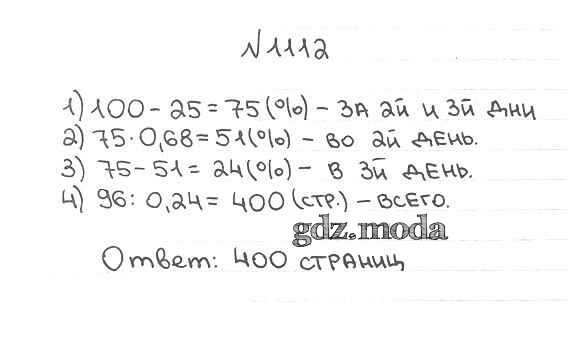 №1112
1) 100 - 25 = 75 (%) - ЗА 2Й И 3Й ДНИ
2) 75 · 0,68 = 51 (%) - ВО 2Й ДЕНЬ.
3) 75 - 51 = 24 (%) - В 3Й ДЕНЬ.
4) 96 : 0,24 = 400 (СТР.) - ВСЕГО.
gdz.moda
Ответ: 400 СТРАНИЦ